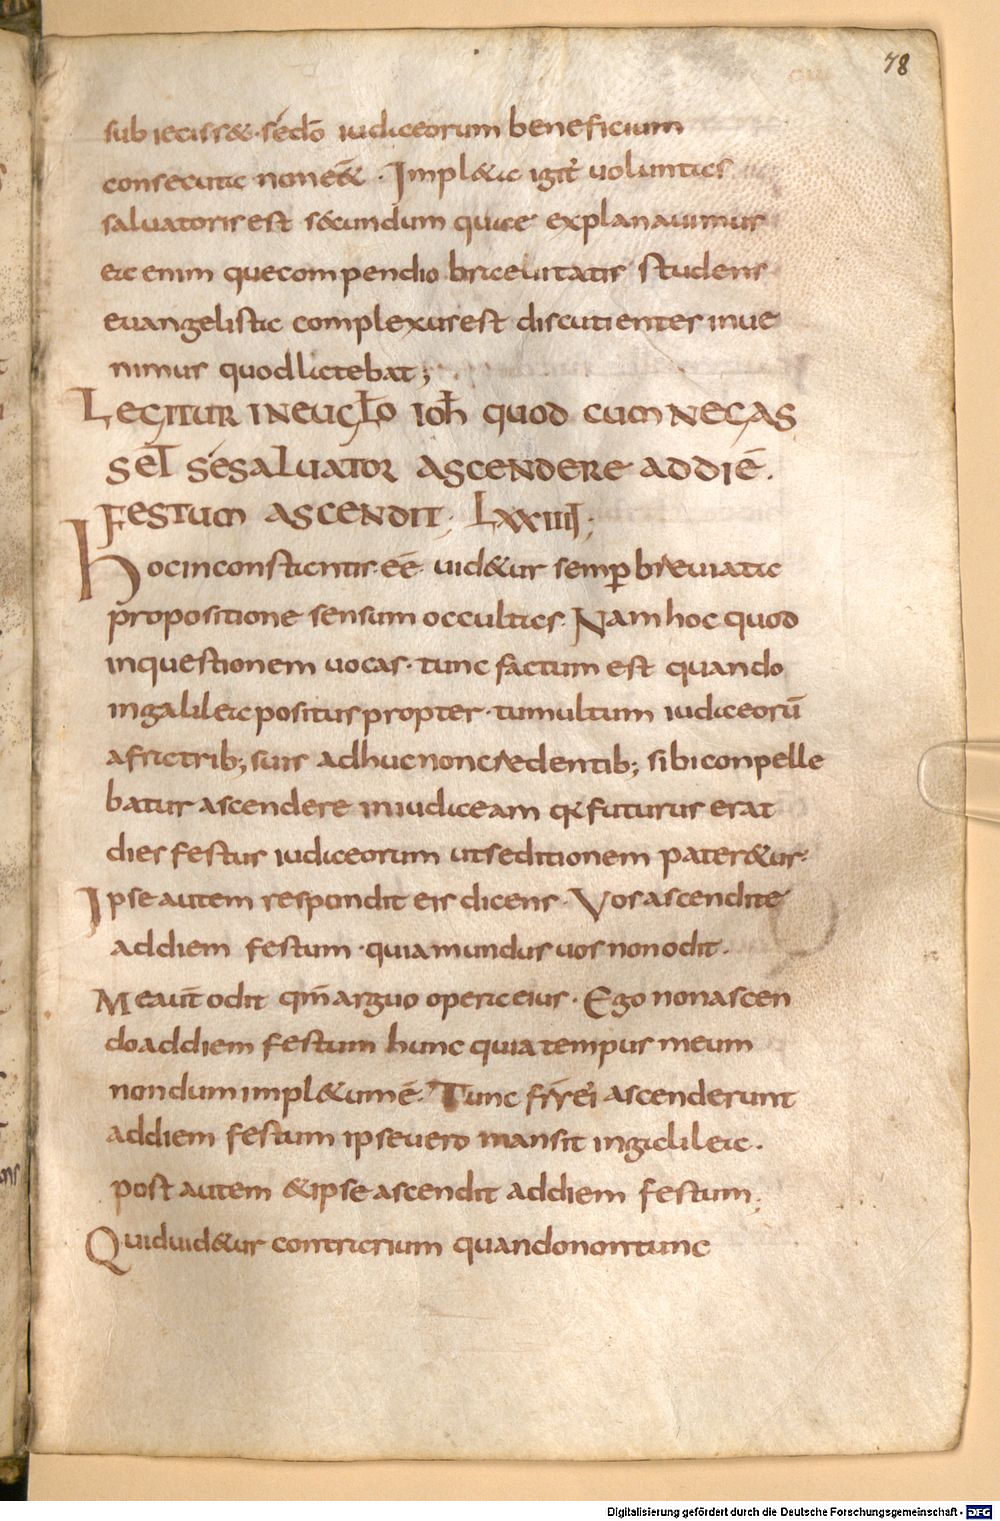 78
subiecisset· sedō iudaeorum beneficium
consecuta non eēt· Impleta igit' uoluntas
saluatoris est secundum quae explanauimus
ea enim que compendio braeuitatis studens
euangelista complexus est discutientes inue
nimus quod latebat;
LEGITUR IN EUGLO IOH QUOD CUM NEGAS
SET SE SALUATOR ASCENDERE AD DIĒ
FESTUM ASCENDIT; LXXIIII;
Hoc inconstantis eē uidetur semp breuiata
propositione sensum occultas Nam hoc quod
in questionem uocas· tunc factum est quando
in galilea positus propter· tumultum iudaeorū
a fratrib; suis adhuc non credentib; sibi conpelle
batur ascendere in iudaeam qa futurus erat
dies festus iudaeorum ut seditionem pateretur·
Ipse autem respondit eis dicens· Vos ascendite
ad diem festum· quia mundus uos non odit·
Me aut̄ odit qm̄ arguo opera eius· Ego non ascen
do ad diem festum hunc quia tempus meum
nondum impletum ē· Tunc frr̄ ei' ascenderunt
ad diem festum ipse uero mansit in galilea·
post autem & ipse ascendit ad diem festum;
Quid uidetur contrarium quando non tunc
Digitalisierung gefördert durch die Deutsche Forschungsgemeinschaft - DFG